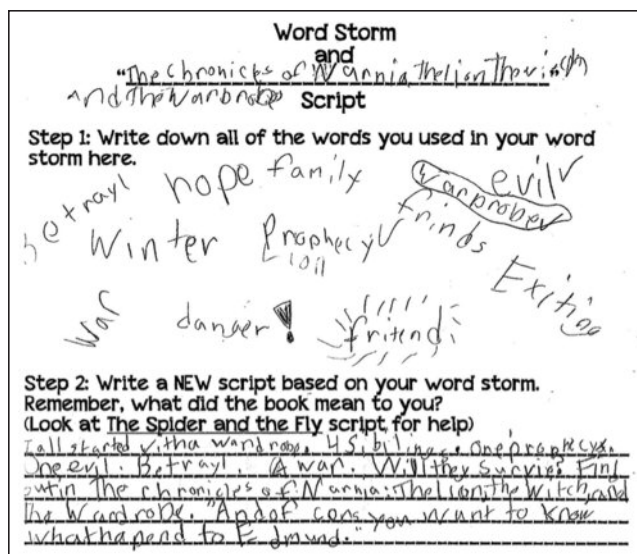 Word Storm
and
"The Chronicles of Narnia, The lion The
And The Warbrobe Script
Step 1: Write down all of the words you used in your word
storm here.
betrayl hope family evil
warprobe
Winter Prophecy frinds
Exiting
war danger! fritend
Step 2: Write a NEW script based on your word storm.
Remember, what did the book mean to you?
(Look at The Spider and the Fly script for help)
I all started with a wardrobe. 4 Sibilings. One prophecys.
One evil. Betrayl. A war. Will they survies Find
out in The chronicles of Narnia: The lion, the Witch, and
The Wardrobe. "And of cors you want to know
what hapend to Edmund."